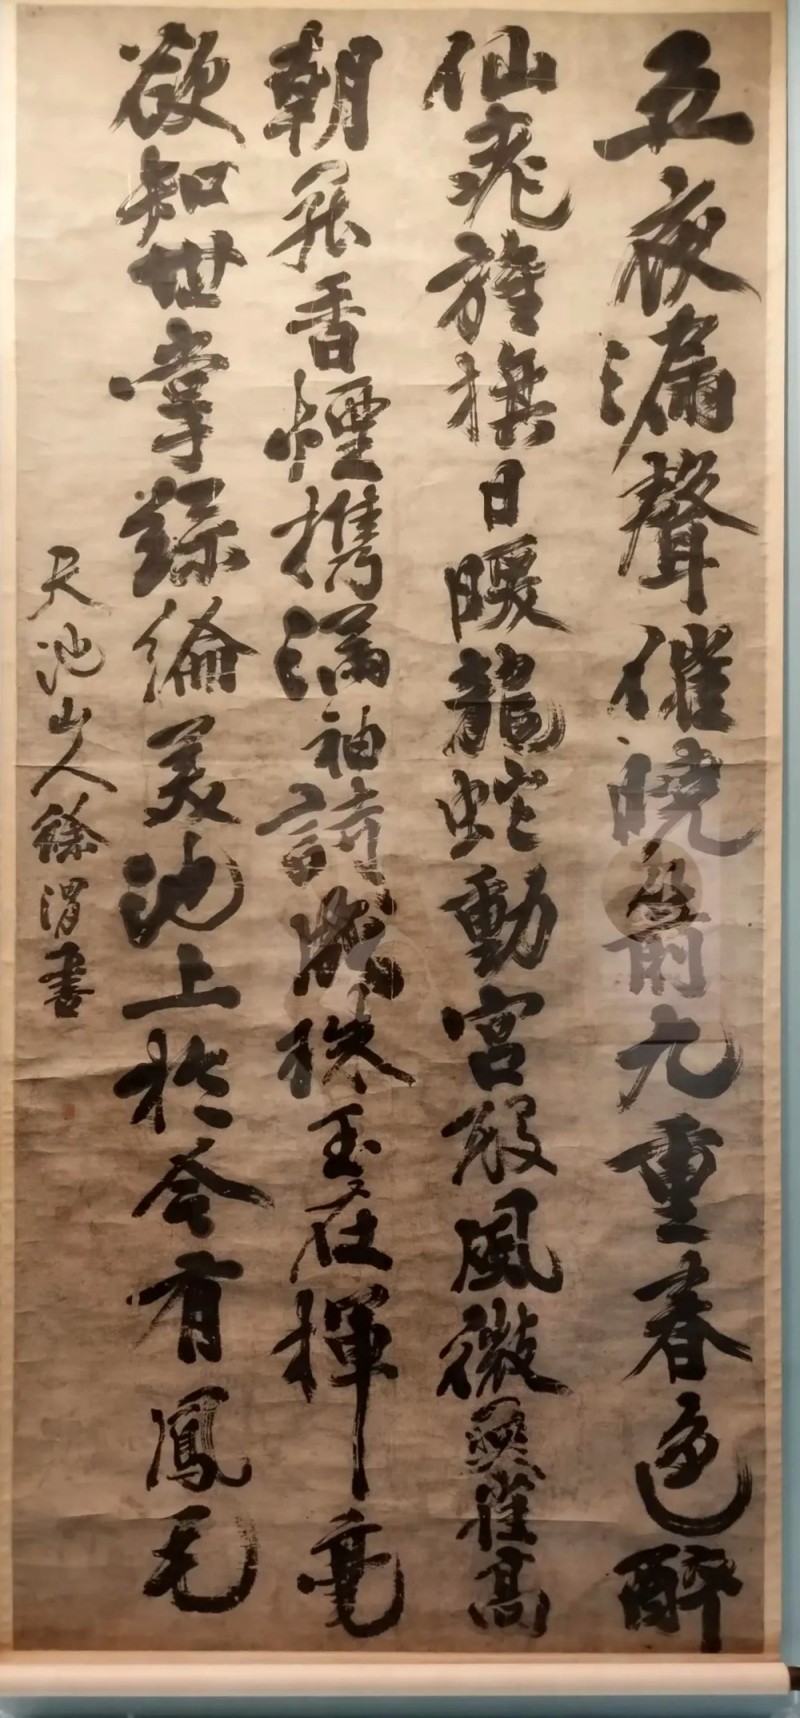 五夜漏聲催曉箭九重春色醉
仙桃旌旗日暖龍蛇動宮殿風微燕雀高
朝罷香煙携滿袖詩成珠玉在揮毫
欲知世掌絲綸美池上於今有鳳毛
天池山人徐渭書